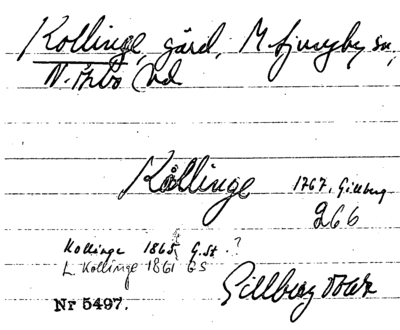 Kollinge, gård, M Ljungby sn,
N. Åsbo hd
Kållinge 1767, Gillberg
266
Kollinge 1865 G.St ?
L. Kollinge 1861 GS
Gillberg
Nr 5497.